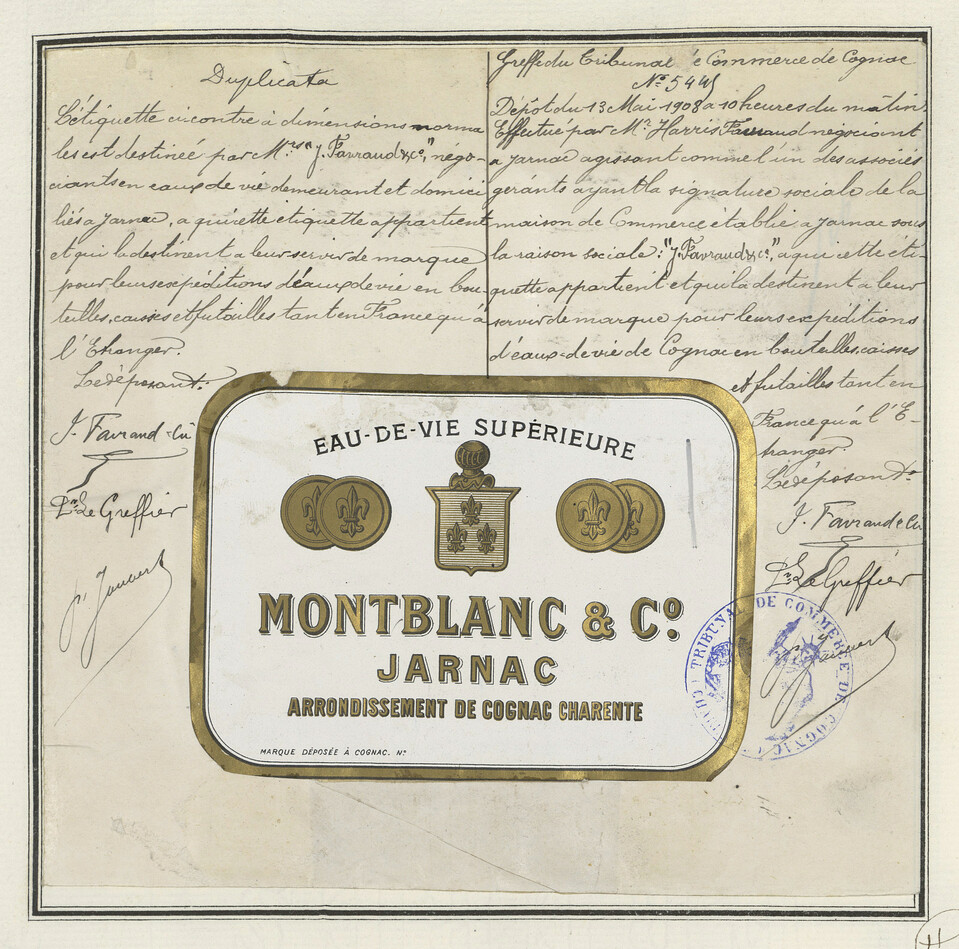 Duplicata
L'étiquette ci-contre à dimensions norma
les est destinée par Mrs "J. Favraud & Co", négo-
ciants en eaux de vie demeurant et domici
liés a Jarnac, a qui cette étiquette appartient
et qui la destinent a leur servir de marque
pour leurs expéditions d'eaux de vie en bou-
teilles, caisses et futailles tant en France qu'à
l'Etranger.
Le déposant:
J. Favraud & Cie
Pr Le Greffier
Greffe du Tribunal de Commerce de Cognac
No
Dépôt du 13 Mai 1908 a 10 heures du matin
Effectué par Mr Harris Favraud négociant
a Jarnac agissant comme l'un des associés
gérants ayant la signature sociale de la
maison de Commerce établie a Jarnac sous
la raison sociale: "J. Favraud & Co", a qui cette éti-
quette appartient et qui la destinent a leur
servir de marque pour leurs expéditions
d'eaux=de vie de Cognac en bouteilles, caisses
et futailles tant en
France qu'à l'E-
tranger.
Le déposant
J. Favraud & Cie
Pr Le Greffier
EAU-DE-VIE SUPÉRIEURE
MONTBLANC & Co
JARNAC
ARRONDISSEMENT DE COGNAC CHARENTE
MARQUE DÉPOSÉE À COGNAC. No
TRIBUNAL DE COMMERCE DE COGNAC
H